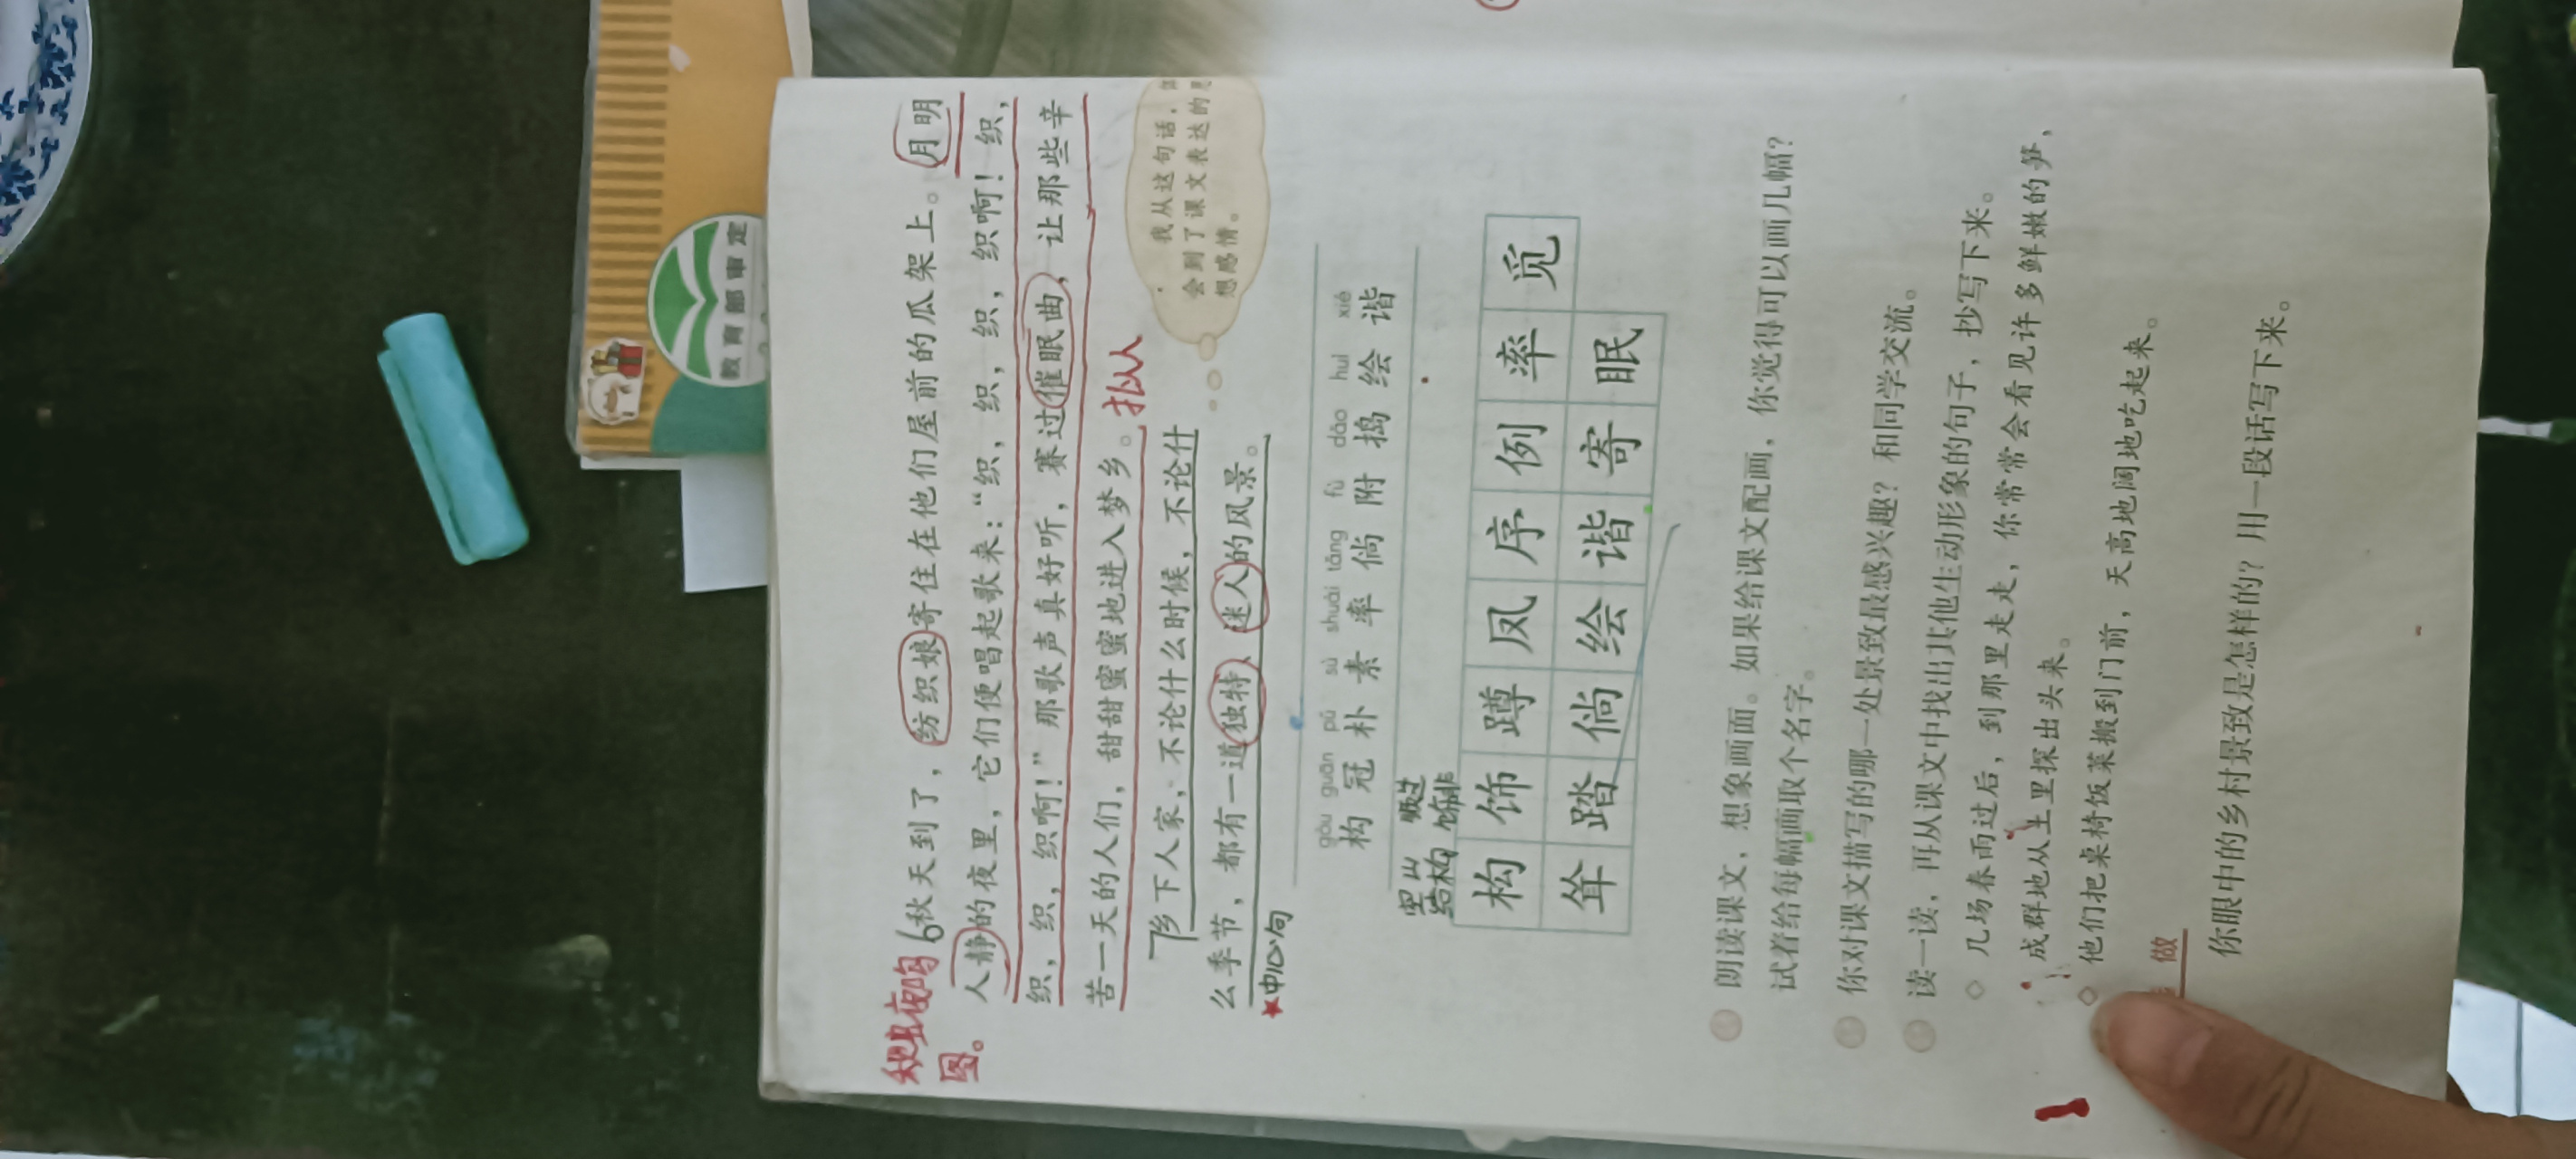 教育部审定
秋虫夜鸣
图。
6秋天到了，纺织娘寄住在他们屋前的瓜架上。月明
人静的夜里，它们便唱起歌来：“织，织，织，织啊！织，
织，织，织啊！”那歌声真好听，赛过催眠曲，让那些辛
苦一天的人们，甜甜蜜蜜地进入梦乡。
拟人
7乡下人家，不论什么时候，不论什
么季节，都有一道独特、迷人的风景。
★中心句
我从这句话，
会到了课文表达的
想感情。
gòu guān pǔ sù shuài tǎng fù dǎo huì xié
构 冠 朴 素 率 倘 附 捣 绘 谐
结构
构 饰 蹲 凤 序 例 率 觅
耸 踏 倘 绘 谐 寄 眠
朗读课文，想象画面。如果给课文配画，你觉得可以画几幅？
试着给每幅画取个名字。
你对课文描写的哪一处景致最感兴趣？和同学交流。
读一读，再从课文中找出其他生动形象的句子，抄写下来。
◇ 几场春雨过后，到那里走走，你常常会看见许多鲜嫩的笋，
成群地从土里探出头来。
◇ 他们把桌椅饭菜搬到门前，天高地阔地吃起来。
做
你眼中的乡村景致是怎样的？用一段话写下来。